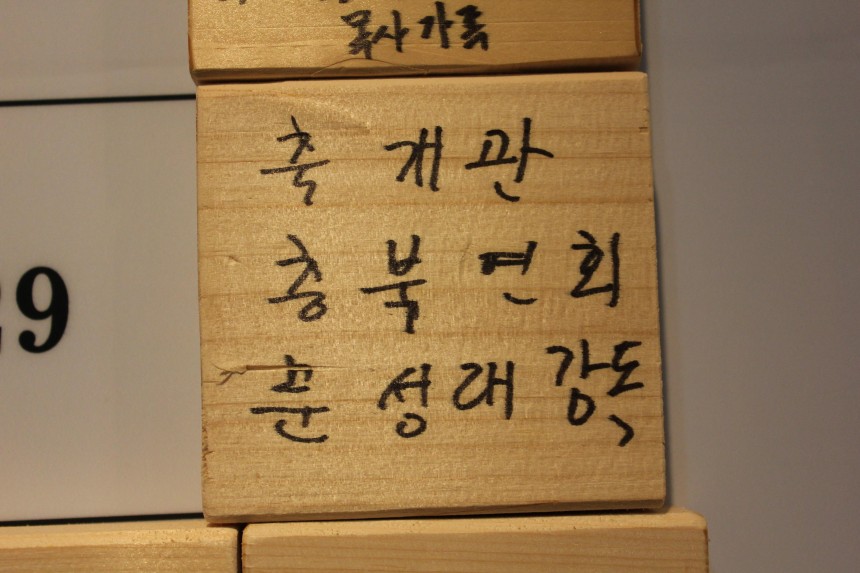 목사가족
축 개관
충북연회
문성대 감독
9